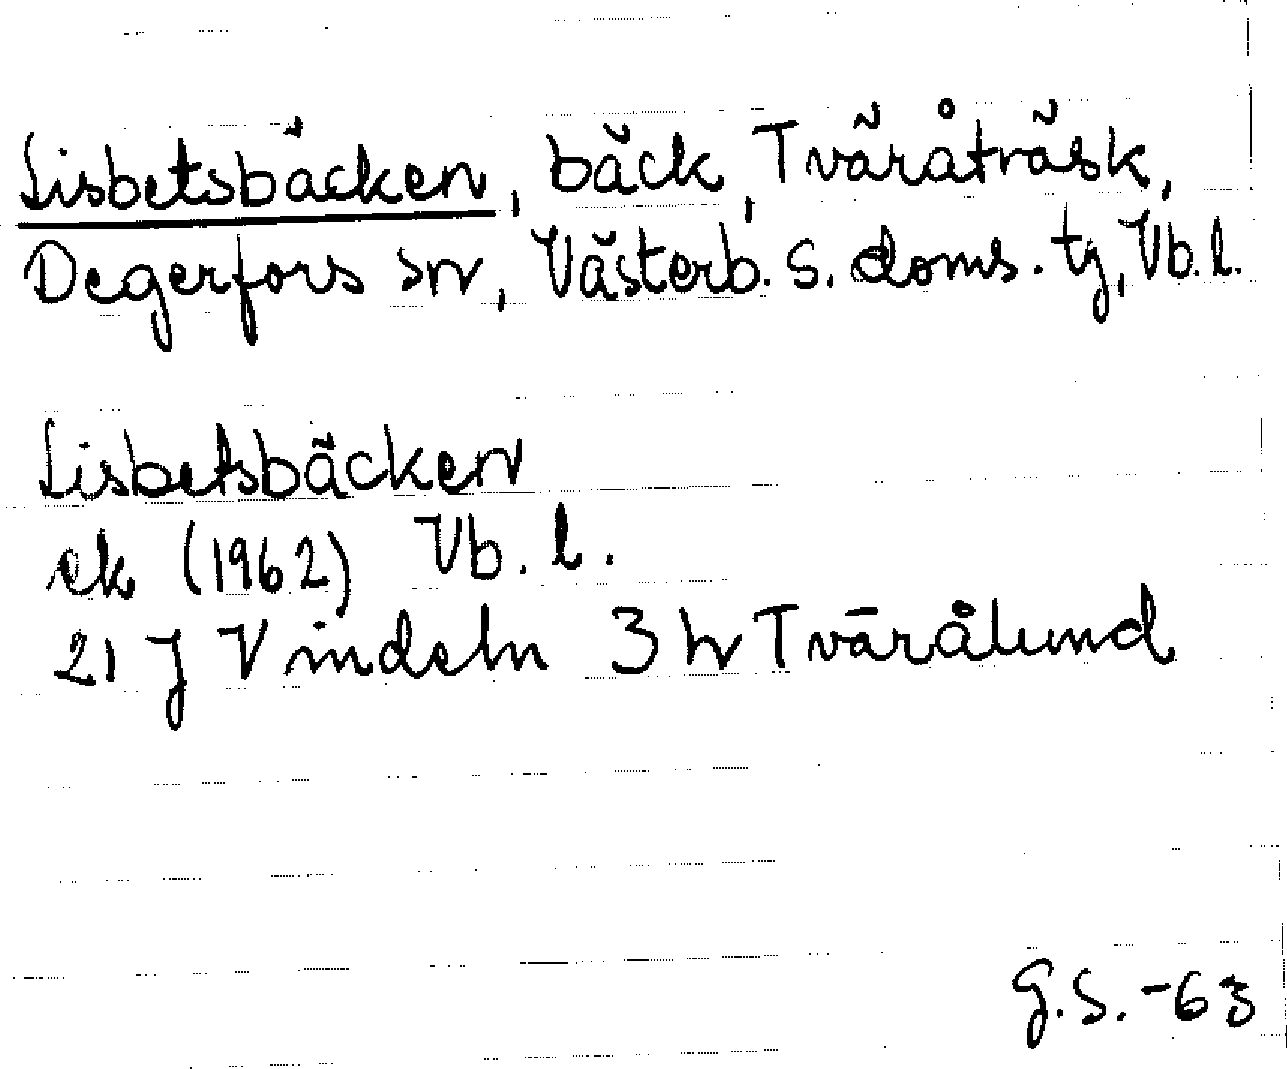 Lisbetsbäcken, bäck, Tväråträsk,
Degerfors sn, Västerb. s. doms. tg, Vb. l.
Lisbetsbäcken
ek (1962) Vb. l.
21 J Vindeln 3 h Tvärålund
G.S. -63